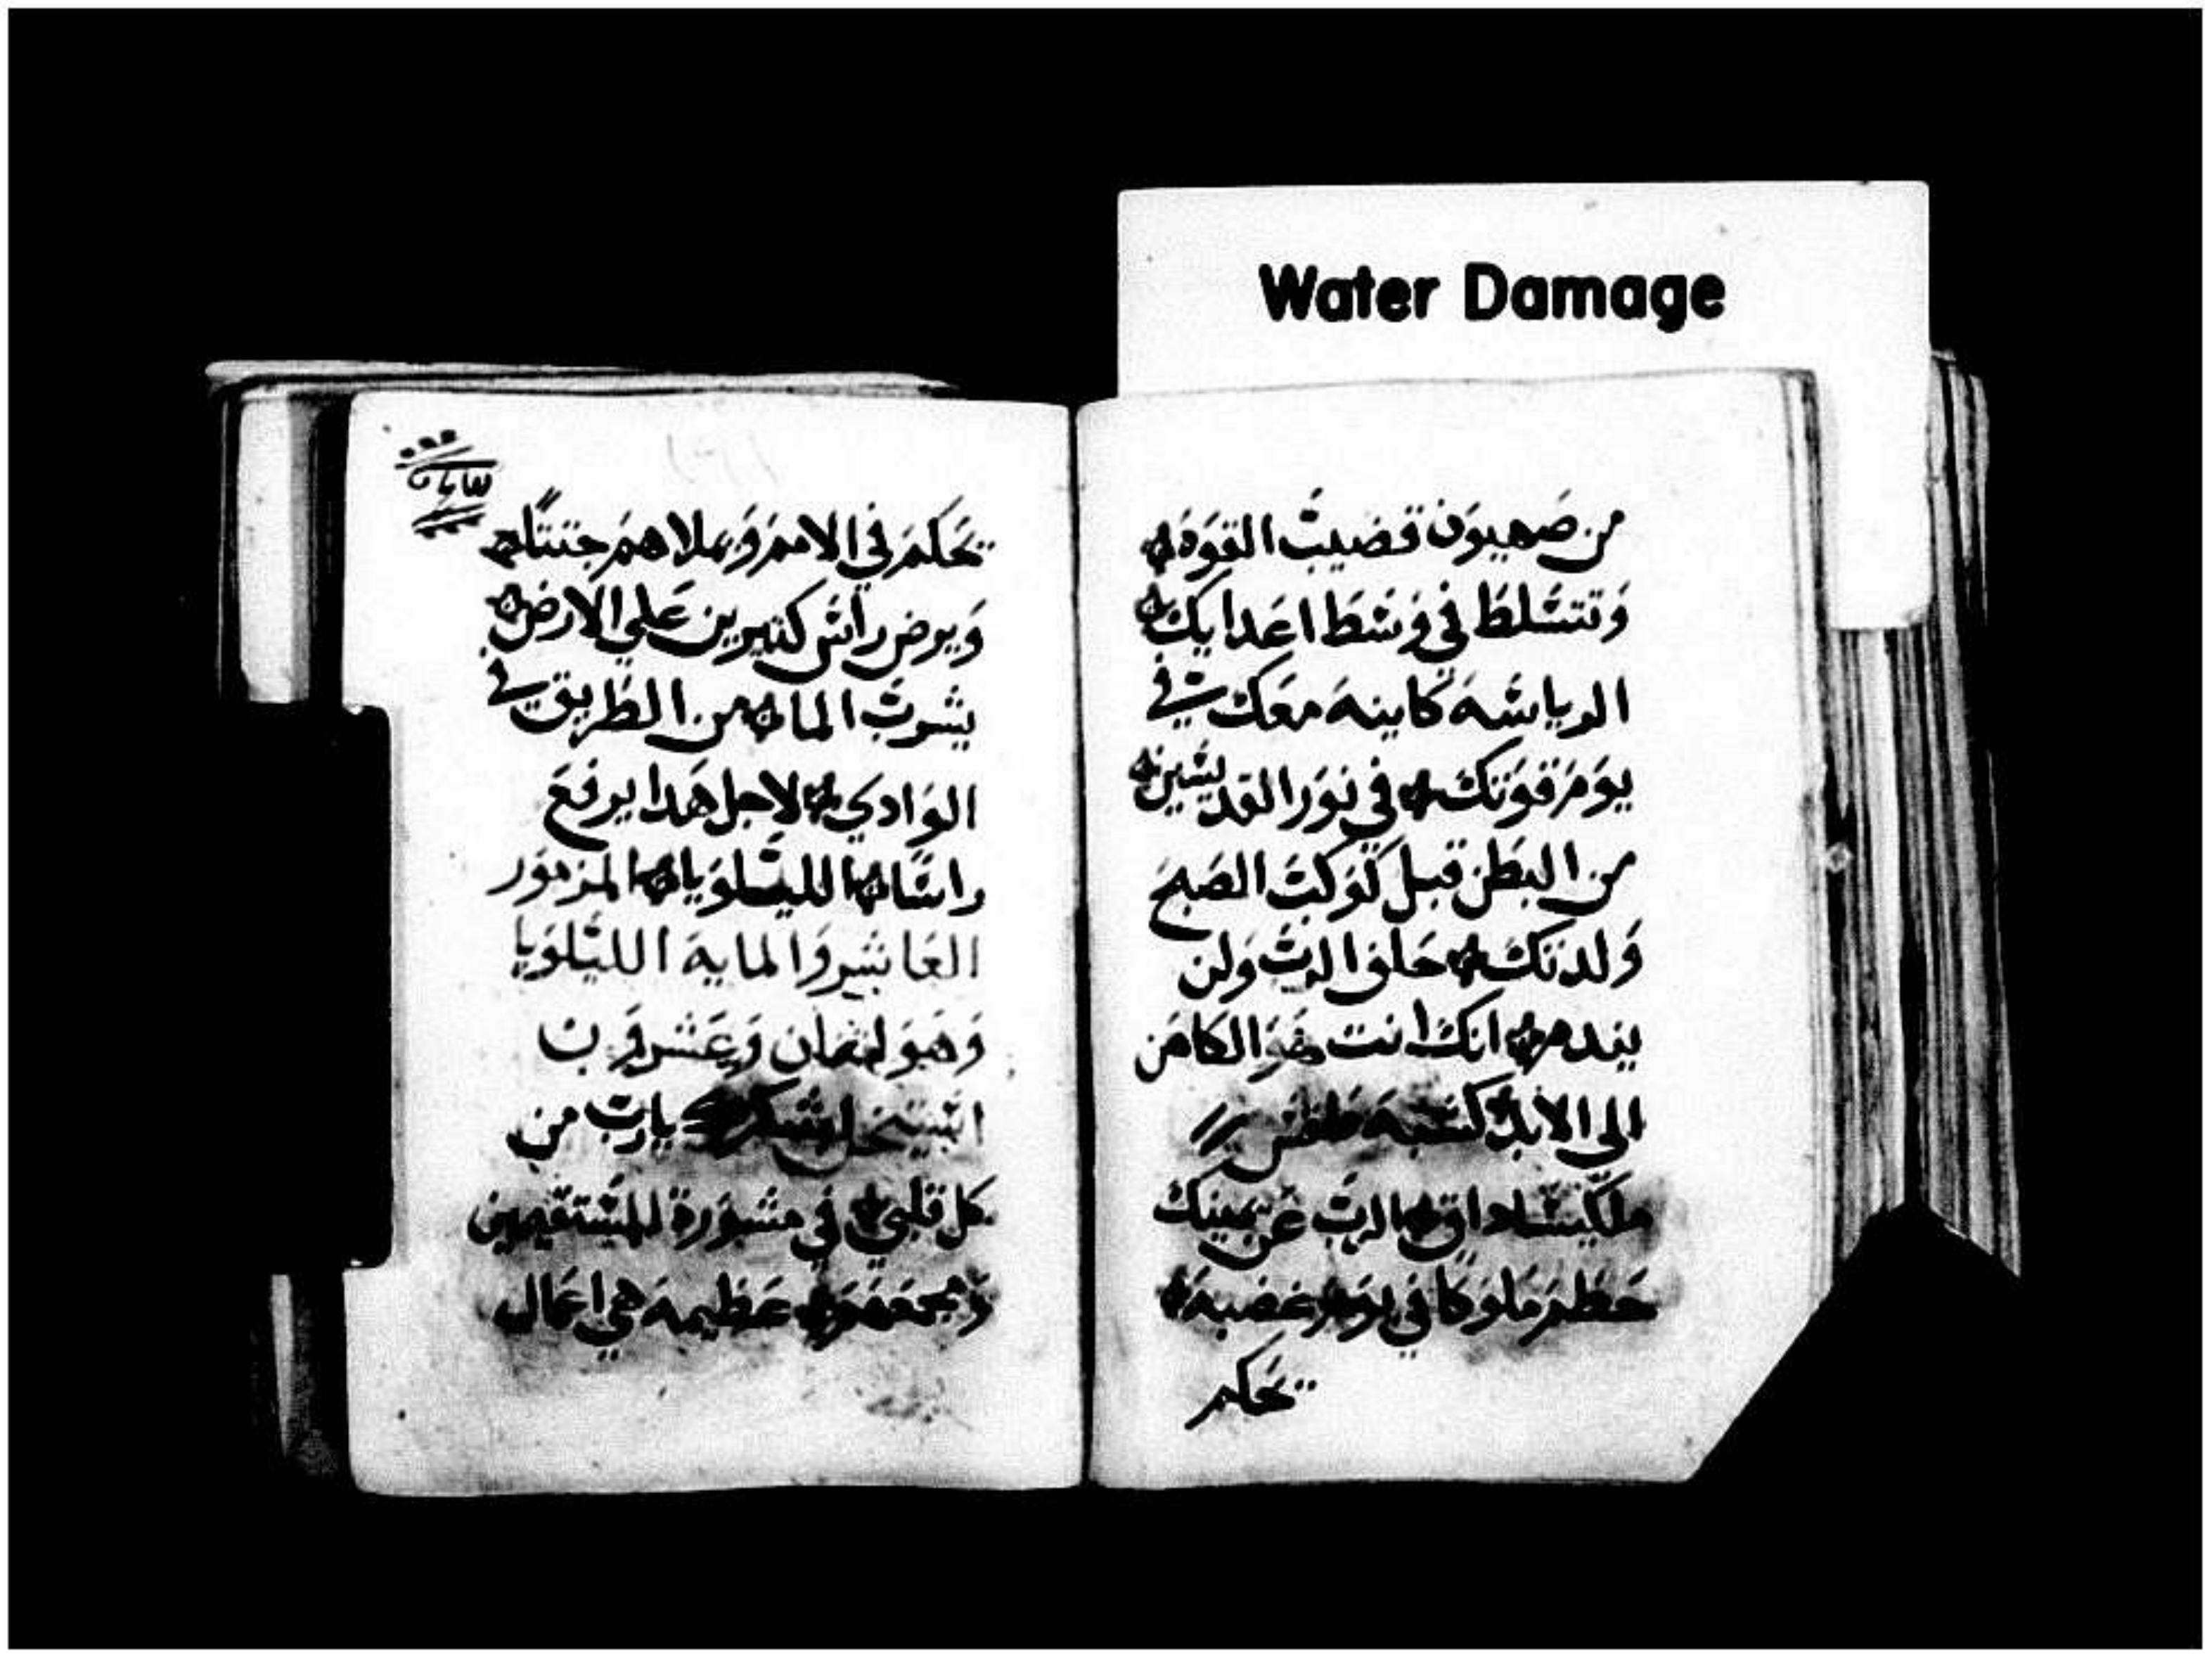 Water Damage
من صَهيوَن قضيبَ القوَة
وَتتسَلطَ في وَسَطَ اعَدايكَ
الرياسَة كاينة معَكَ في
يوَمَ قوَتكَ في نوَر القديسَين
من البَطن قبل كوَكبَ الصَبح
وَلدتكَ حَلفَ الربَ وَلن
يندمَ انكَ انت هوَ الكاهَن
الى الابدَ كشبة طقسَ
ملكيسَاداق الربَ عَن يمينكَ
حَطمَ ملوَكا في يوَم غضبة
يحَكم
يحَكمَ في الاممَ وَيملاهمَ جتتًا
وَيرض راسَ كثيرين عَلي الارض
يشربَ الما من الطَريق في
الوَادي لاجل هَدا يرفعَ
راسَا الليسَلوَيا المزموَر
العَاشر وَالماية الليَلوَيا
وَهوَ لثمان وَعَشروَن
اشكر ياربَ من
كل قلبي في مشوَرة المسَتقيمين
وَمجمعَهمَ عَظيمة هي اعَمال